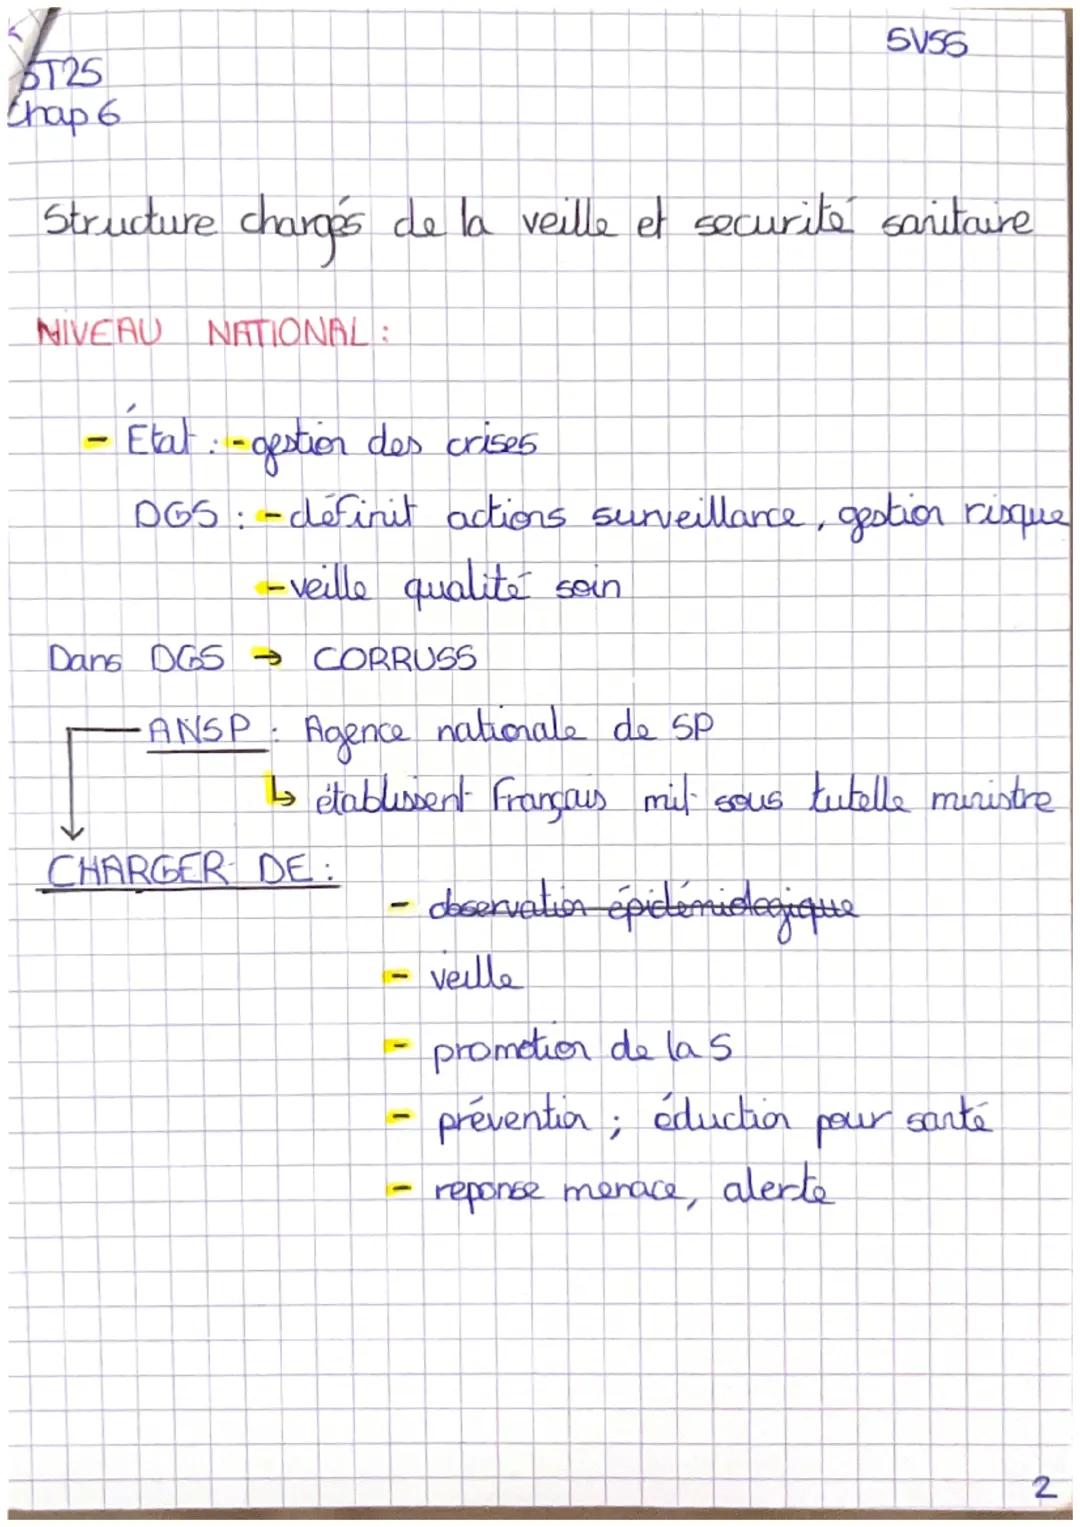 SVSS
ST2S
Chap 6
Structure chargés de la veille et securité sanitaire
NIVEAU NATIONAL :
- État : - gestion des crises
DGS : - définit actions surveillance, gestion risque
- veille qualité soin
Dans DGS → CORRUSS
ANSP : Agence nationale de SP
↳ établissent Français mit sous tutelle ministre
CHARGER DE :
- observation épidémiologique
- veille
- promotion de la S
- prévention ; éduction pour santé
- reponse menace, alerte
2